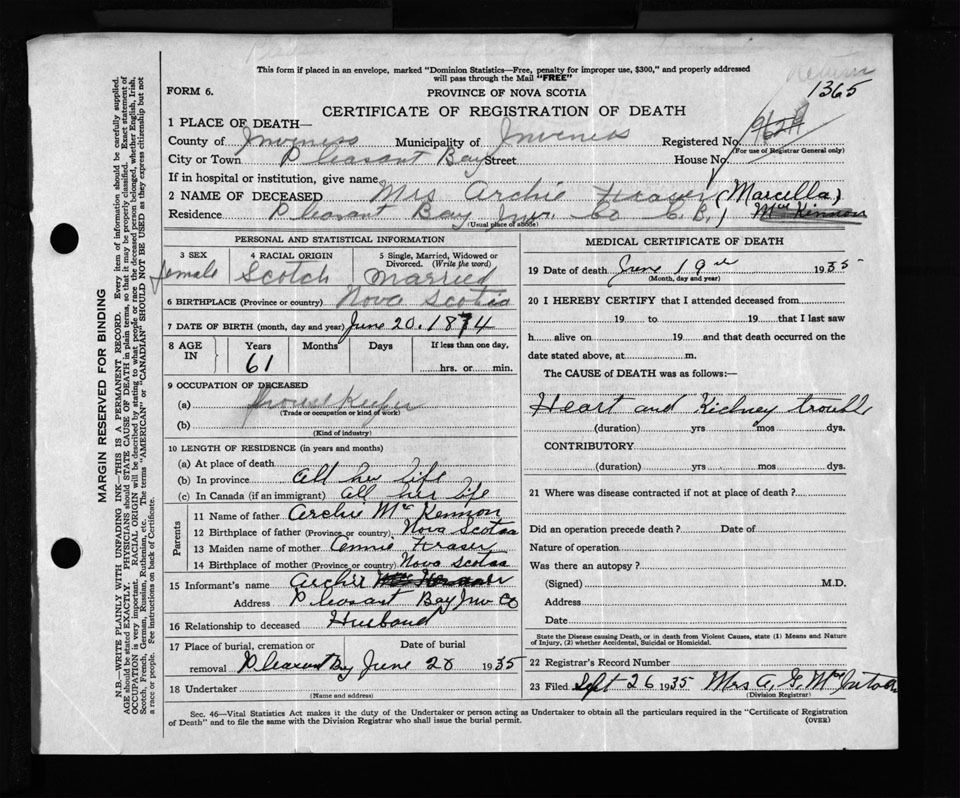 This form if placed in an envelope, marked "Dominion Statistics—Free, penalty for improper use, $300," and properly addressed
will pass through the Mail "FREE"
1365
FORM 6.
PROVINCE OF NOVA SCOTIA
CERTIFICATE OF REGISTRATION OF DEATH
1 PLACE OF DEATH—
County of Inverness Municipality of Inverness Registered No.
(For use of Registrar General only)
City or Town Pleasant Bay Street House No.
If in hospital or institution, give name
2 NAME OF DECEASED Mrs Archie Fraser (Marcella)
Residence Pleasant Bay Inv. Co C.B. Mc Kinnon
(Usual place of abode)
PERSONAL AND STATISTICAL INFORMATION
3 SEX 4 RACIAL ORIGIN 5 Single, Married, Widowed or Divorced. (Write the word)
female Scotch Married
6 BIRTHPLACE (Province or country) Nova Scotia
7 DATE OF BIRTH (month, day and year) June 20. 1874
8 AGE IN Years Months Days If less than one day,
61 hrs. or min.
9 OCCUPATION OF DECEASED
(a) House Keeper
(Trade or occupation or kind of work)
(b)
(Kind of industry)
10 LENGTH OF RESIDENCE (in years and months)
(a) At place of death
(b) In province all her life
(c) In Canada (if an immigrant) all her life
Parents
11 Name of father Archie Mc Kennon
12 Birthplace of father (Province or country) Nova Scotia
13 Maiden name of mother Annie Fraser
14 Birthplace of mother (Province or country) Nova Scotia
15 Informant's name Archie
Address Pleasant Bay Inv Co
16 Relationship to deceased Husband
17 Place of burial, cremation or removal Date of burial
Pleasant Bay June 20 1935
18 Undertaker
(Name and address)
MEDICAL CERTIFICATE OF DEATH
19 Date of death June 19th 1935
(Month, day and year)
20 I HEREBY CERTIFY that I attended deceased from
19 to 19 that I last saw
h alive on 19 and that death occurred on the
date stated above, at m.
The CAUSE of DEATH was as follows:—
Heart and Kidney trouble
(duration) yrs mos dys.
CONTRIBUTORY
(duration) yrs mos dys.
21 Where was disease contracted if not at place of death?
Did an operation precede death? Date of
Nature of operation
Was there an autopsy?
(Signed) M.D.
Address
Date
State the Disease causing Death, or in death from Violent Causes, state (1) Means and Nature
of Injury, (2) whether Accidental, Suicidal or Homicidal.
22 Registrar's Record Number
23 Filed Sept 26 1935 Mrs A. G. McIntosh
(Division Registrar)
Sec. 46—Vital Statistics Act makes it the duty of the Undertaker or person acting as Undertaker to obtain all the particulars required in the "Certificate of Registration
of Death" and to file the same with the Division Registrar who shall issue the burial permit.
(OVER)
MARGIN RESERVED FOR BINDING
N.B.—WRITE PLAINLY WITH UNFADING INK—THIS IS A PERMANENT RECORD. Every item of information should be carefully supplied.
AGE should be stated EXACTLY. PHYSICIANS should STATE CAUSE OF DEATH in plain terms, so that it may be properly classified. Exact statement of
OCCUPATION is very important. RACIAL ORIGIN will be described by stating to what people or race the deceased person belonged, whether English, Irish,
Scotch, French, German, Russian, Ruthenian, etc. The terms "AMERICAN" or "CANADIAN" SHOULD NOT BE USED as they express citizenship but not
a race or people. See instructions on back of Certificate.